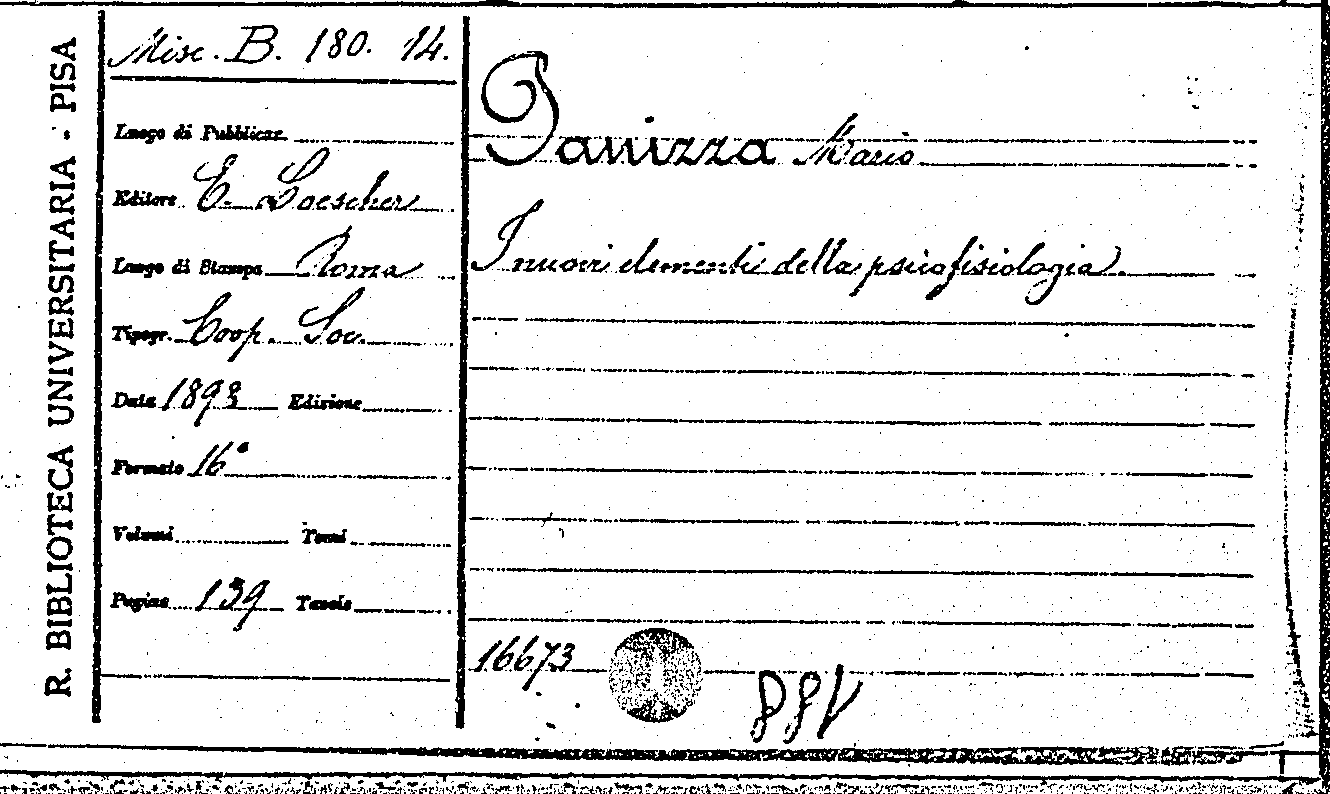 R. BIBLIOTECA UNIVERSITARIA - PISA
Misc. B. 180. 14.
Luogo di Pubblicaz.
Editore E. Loescher
Luogo di Stampa Roma
Tipogr. Coop. Soc.
Data 1893 Edizione
Formato 16°
Volumi Tomi
Pagine 139 Tavole
Panizza Mario
I nuovi elementi della psicofisiologia.
16673